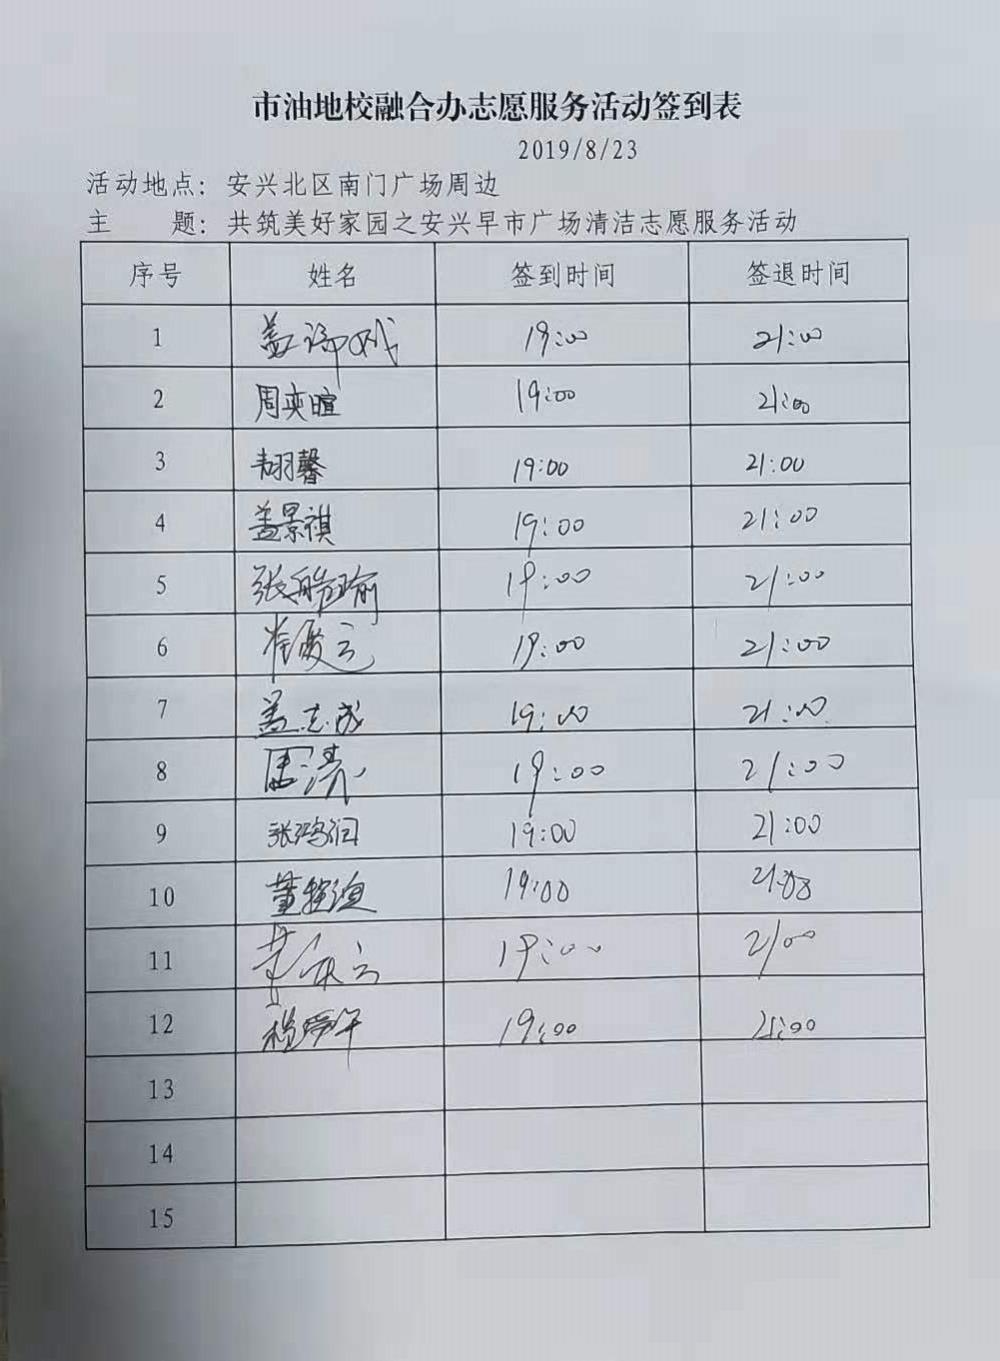 市油地校融合办志愿服务活动签到表
2019/8/23
活动地点：安兴北区南门广场周边
主　　题：共筑美好家园之安兴早市广场清洁志愿服务活动
序号 姓名 签到时间 签退时间
1 盖 19:00 21:00
2 周奕暄 19:00 21:00
3 胡馨 19:00 21:00
4 盖景祺 19:00 21:00
5 张皓瑜 19:00 21:00
6 19:00 21:00
7 盖志成 19:00 21:00
8 周清 19:00 21:00
9 张鸿润 19:00 21:00
10 董 19:00 21:00
11 19:00 21:00
12 程 19:00 21:00
13
14
15